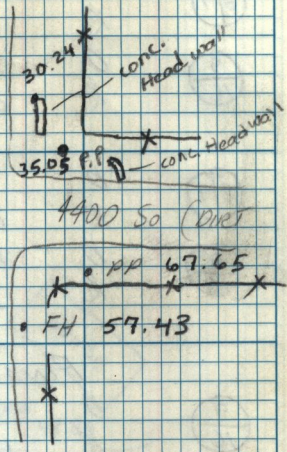 30.24
conc.
Head wall
35.05 P.P
conc. Headwall
4400 So Court
PP 67.65
FH 57.43